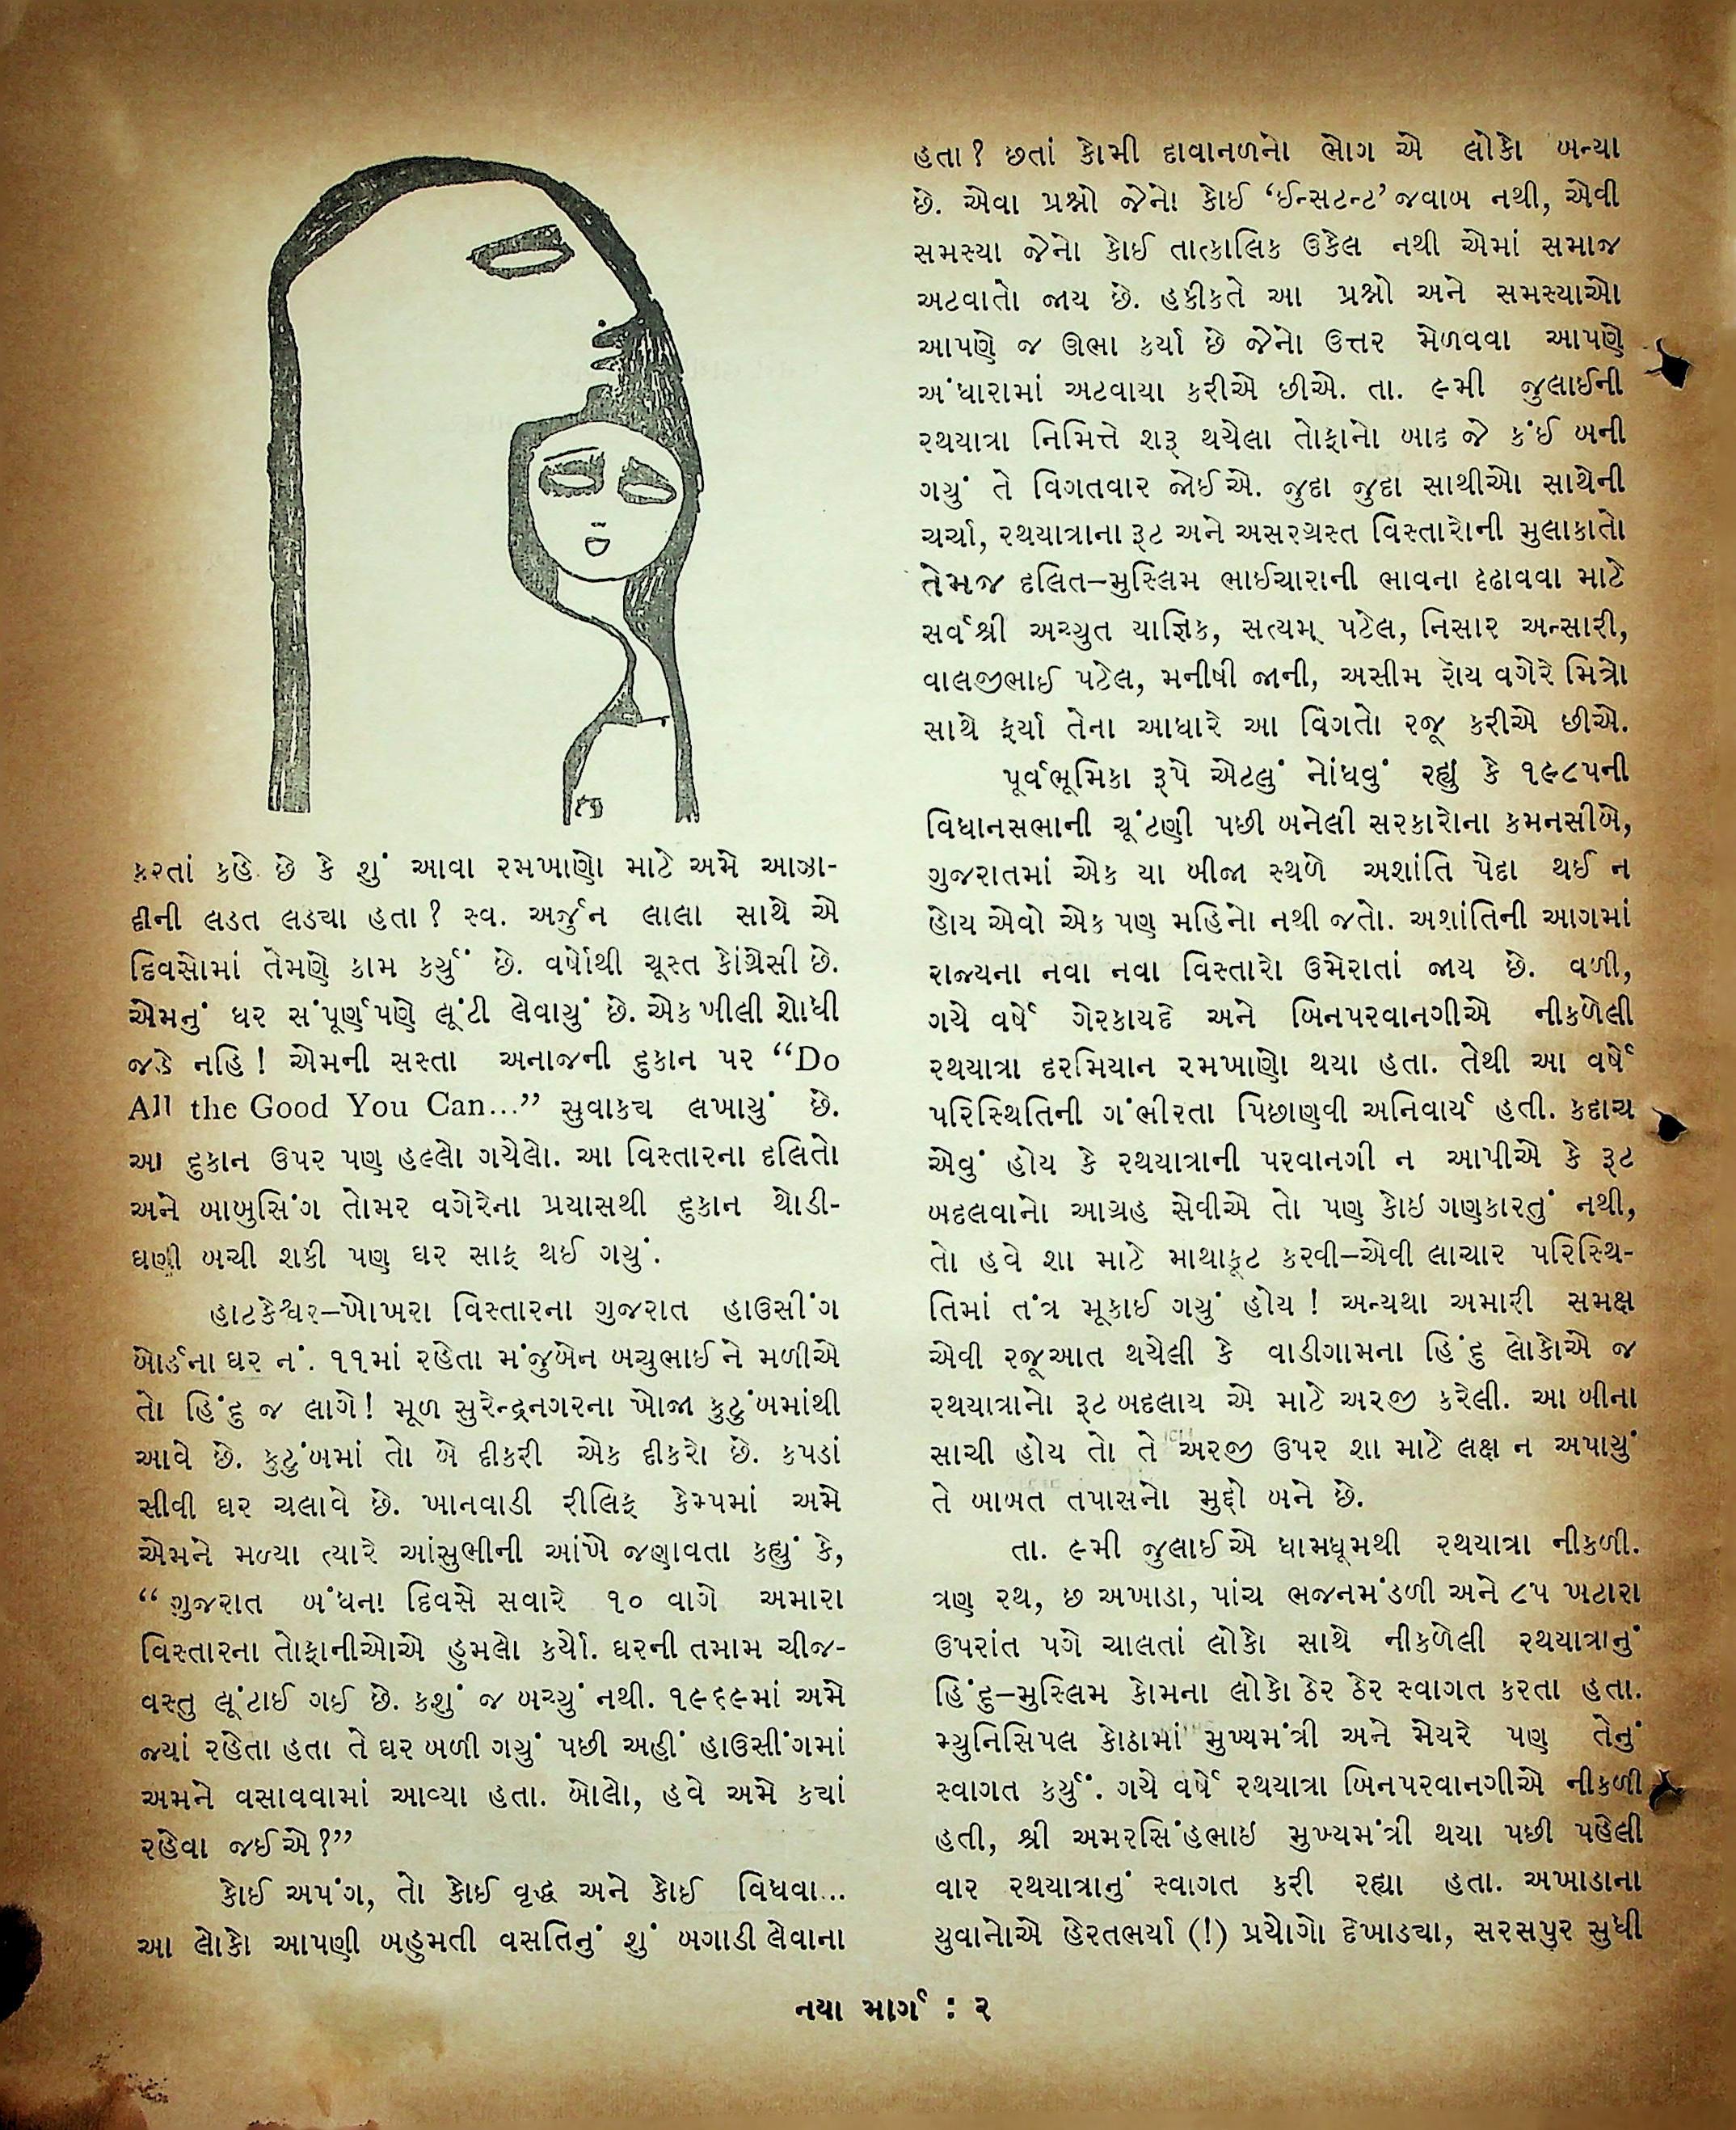 કરતાં કહે છે કે શું આવા રમખાણો માટે અમે આઝા-
દીની લડત લડ્યા હતા? સ્વ. અર્જુન લાલા સાથે એ
દિવસોમાં તેમણે કામ કર્યું છે. વર્ષોથી ચૂસ્ત કોંગ્રેસી છે.
એમનું ઘર સંપૂર્ણપણે લૂંટી લેવાયું છે. એક ખીલી શોધી
જડે નહિ! એમની સસ્તા અનાજની દુકાન પર “Do
All the Good You Can...” સુવાક્ય લખાયું છે.
આ દુકાન ઉપર પણ હલ્લો ગયેલો. આ વિસ્તારના દલિતો
અને બાબુસિંગ તોમર વગેરેના પ્રયાસથી દુકાન થોડી-
ઘણી બચી શકી પણ ઘર સાફ થઈ ગયું.
હાટકેશ્વર–ખોખરા વિસ્તારના ગુજરાત હાઉસીંગ
બોર્ડના ઘર નં. ૧૧માં રહેતા મંજુબેન બચુભાઈને મળીએ
તો હિંદુ જ લાગે! મૂળ સુરેન્દ્રનગરના ખોજા કુટુંબમાંથી
આવે છે. કુટુંબમાં તો બે દીકરી એક દીકરો છે. કપડાં
સીવી ઘર ચલાવે છે. ખાનવાડી રીલિફ કેમ્પમાં અમે
એમને મળ્યા ત્યારે આંસુભીની આંખે જણાવતા કહ્યું કે,
“ગુજરાત બંધના દિવસે સવારે ૧૦ વાગે અમારા
વિસ્તારના તોફાનીઓએ હુમલો કર્યો. ઘરની તમામ ચીજ-
વસ્તુ લૂંટાઈ ગઈ છે. કશું જ બચ્યું નથી. ૧૯૬૯માં અમે
જ્યાં રહેતા હતા તે ઘર બળી ગયું પછી અહીં હાઉસીંગમાં
અમને વસાવવામાં આવ્યા હતા. બોલો, હવે અમે ક્યાં
રહેવા જઈએ?”
કોઈ અપંગ, તો કોઈ વૃદ્ધ અને કોઈ વિધવા...
આ લોકો આપણી બહુમતી વસતિનું શું બગાડી લેવાના
હતા? છતાં કોમી દાવાનળનો ભોગ એ લોકો બન્યા
છે. એવા પ્રશ્નો જેનો કોઈ ‘ઈન્સટન્ટ’ જવાબ નથી, એવી
સમસ્યા જેનો કોઈ તાત્કાલિક ઉકેલ નથી એમાં સમાજ
અટવાતો જાય છે. હકીકતે આ પ્રશ્નો અને સમસ્યાઓ
આપણે જ ઊભા કર્યા છે જેનો ઉત્તર મેળવવા આપણે
અંધારામાં અટવાયા કરીએ છીએ. તા. ૯મી જુલાઈની
રથયાત્રા નિમિત્તે શરૂ થયેલા તોફાનો બાદ જે કંઈ બની
ગયું તે વિગતવાર જોઈએ. જુદા જુદા સાથીઓ સાથેની
ચર્ચા, રથયાત્રાના રૂટ અને અસરગ્રસ્ત વિસ્તારોની મુલાકાતો
તેમજ દલિત–મુસ્લિમ ભાઈચારાની ભાવના દૃઢાવવા માટે
સર્વશ્રી અચ્યુત યાજ્ઞિક, સત્યમ્ પટેલ, નિસાર અન્સારી,
વાલજીભાઈ પટેલ, મનીષી જાની, અસીમ રૉય વગેરે મિત્રો
સાથે ફર્યા તેના આધારે આ વિગતો રજૂ કરીએ છીએ.
પૂર્વભૂમિકા રૂપે એટલું નોંધવું રહ્યું કે ૧૯૮૫ની
વિધાનસભાની ચૂંટણી પછી બનેલી સરકારોના કમનસીબે,
ગુજરાતમાં એક યા બીજા સ્થળે અશાંતિ પેદા થઈ ન
હોય એવો એક પણ મહિનો નથી જતો. અશાંતિની આગમાં
રાજ્યના નવા નવા વિસ્તારો ઉમેરાતાં જાય છે. વળી,
ગયે વર્ષે ગેરકાયદે અને બિનપરવાનગીએ નીકળેલી
રથયાત્રા દરમિયાન રમખાણો થયા હતા. તેથી આ વર્ષે
પરિસ્થિતિની ગંભીરતા પિછાણવી અનિવાર્ય હતી. કદાચ
એવું હોય કે રથયાત્રાની પરવાનગી ન આપીએ કે રૂટ
બદલવાનો આગ્રહ સેવીએ તો પણ કોઇ ગણકારતું નથી,
તો હવે શા માટે માથાકૂટ કરવી–એવી લાચાર પરિસ્થિ-
તિમાં તંત્ર મૂકાઈ ગયું હોય! અન્યથા અમારી સમક્ષ
એવી રજૂઆત થયેલી કે વાડીગામના હિંદુ લોકોએ જ
રથયાત્રાનો રૂટ બદલાય એ માટે અરજી કરેલી. આ બીના
સાચી હોય તો તે અરજી ઉપર શા માટે લક્ષ ન અપાયું
તે બાબત તપાસનો મુદ્દો બને છે.
તા. ૯મી જુલાઈએ ધામધૂમથી રથયાત્રા નીકળી.
ત્રણ રથ, છ અખાડા, પાંચ ભજનમંડળી અને ૮૫ ખટારા
ઉપરાંત પગે ચાલતાં લોકો સાથે નીકળેલી રથયાત્રાનું
હિંદુ–મુસ્લિમ કોમના લોકો ઠેર ઠેર સ્વાગત કરતા હતા.
મ્યુનિસિપલ કોઠામાં મુખ્યમંત્રી અને મેયરે પણ તેનું
સ્વાગત કર્યું. ગયે વર્ષે રથયાત્રા બિનપરવાનગીએ નીકળી
હતી, શ્રી અમરસિંહભાઇ મુખ્યમંત્રી થયા પછી પહેલી
વાર રથયાત્રાનું સ્વાગત કરી રહ્યા હતા. અખાડાના
યુવાનોએ હેરતભર્યા (!) પ્રયોગો દેખાડ્યા, સરસપુર સુધી
નયા માર્ગ : ૨